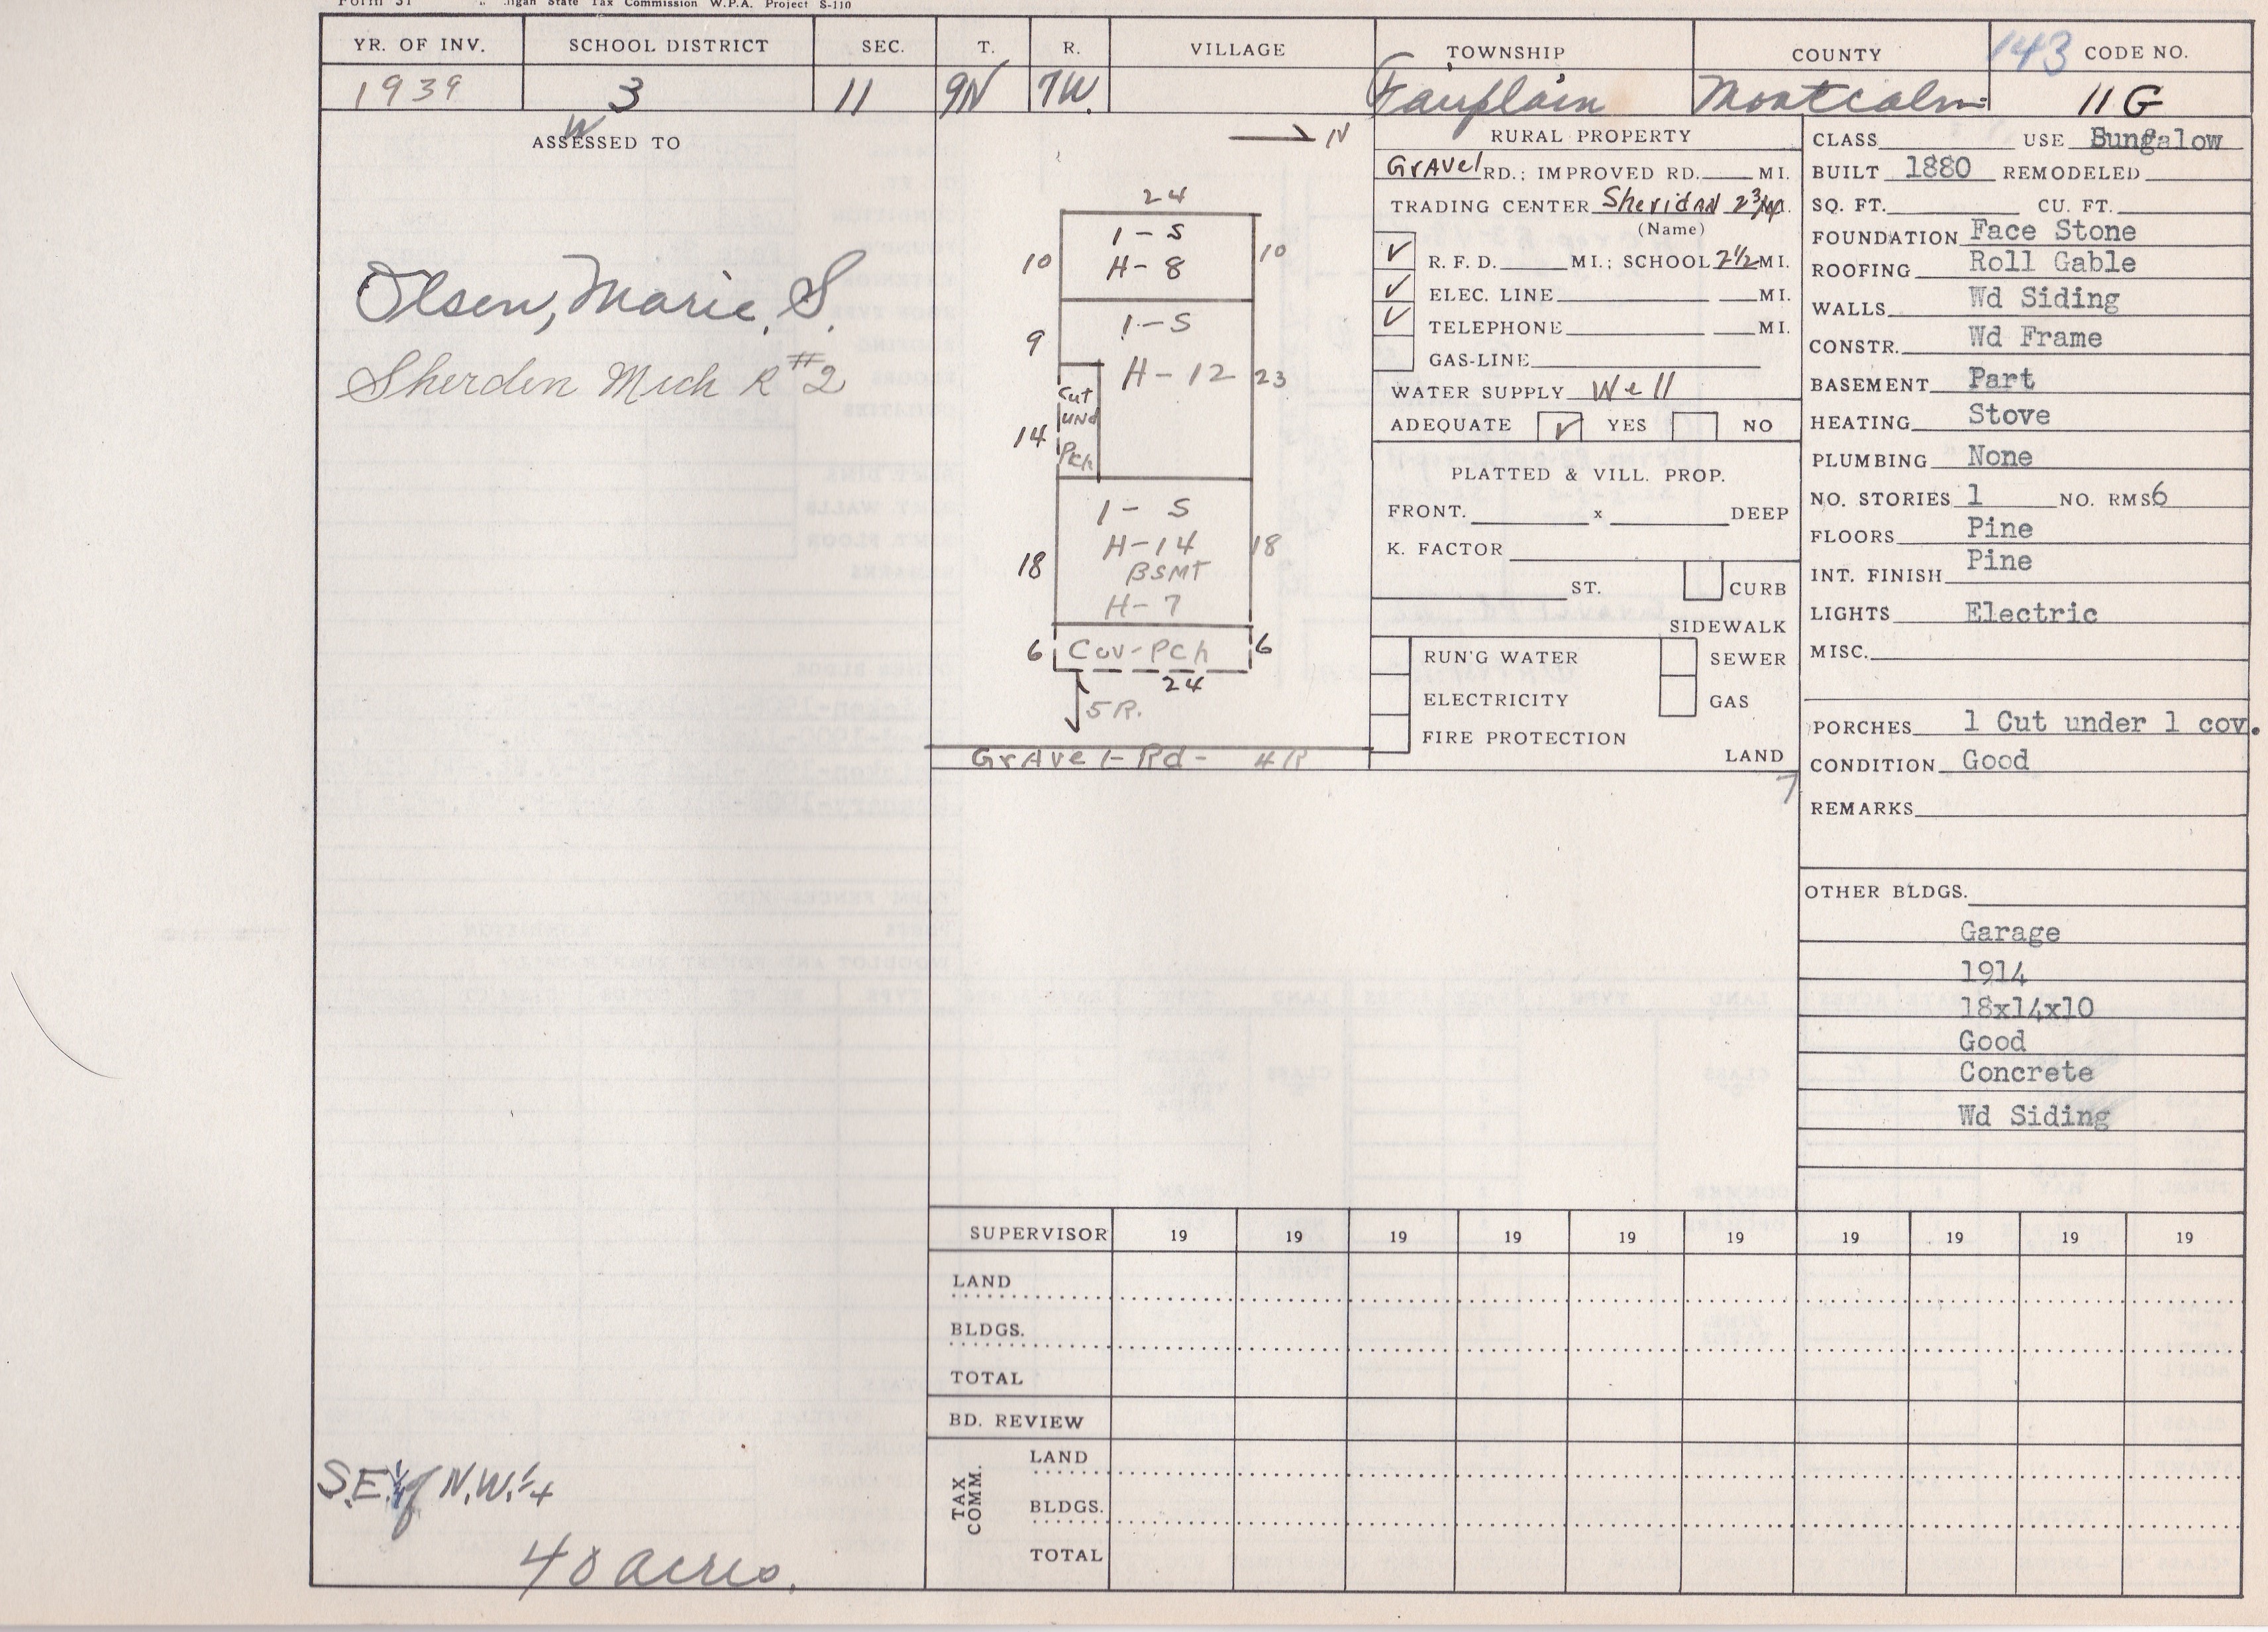 Form 31 igan State Tax Commission W.P.A. Project S-110
YR. OF INV. SCHOOL DISTRICT SEC. T. R. VILLAGE TOWNSHIP COUNTY 143 CODE NO.
1939 3 11 9N 7W. Fairplain Montcalm 11 G
ASSESSED TO
W
Olsen, Marie, S.
Sherden Mich R #2
S.E.¼ of N.W.¼
40 acres.
N
24
1-S
10 H-8 10
1-S
9
H-12 23
Cut
und
14
Pch
1-S
H-14
18 BSMT 18
H-7
6 Cov-Pch 6
24
5 R.
Gravel-Rd- 4R
RURAL PROPERTY
Gravel RD.; IMPROVED RD. MI.
TRADING CENTER Sheridan 2¾ MI.
(Name)
✓ R. F. D. MI.; SCHOOL 2½ MI.
✓ ELEC. LINE MI.
✓ TELEPHONE MI.
GAS-LINE
WATER SUPPLY Well
ADEQUATE ✓ YES NO
PLATTED & VILL. PROP.
FRONT. x DEEP
K. FACTOR
ST. CURB
SIDEWALK
RUN'G WATER SEWER
ELECTRICITY GAS
FIRE PROTECTION
LAND
7
CLASS USE Bungalow
BUILT 1880 REMODELED
SQ. FT. CU. FT.
FOUNDATION Face Stone
ROOFING Roll Gable
WALLS Wd Siding
CONSTR. Wd Frame
BASEMENT Part
HEATING Stove
PLUMBING None
NO. STORIES 1 NO. RMS 6
FLOORS Pine
INT. FINISH Pine
LIGHTS Electric
MISC.
PORCHES 1 Cut under 1 cov.
CONDITION Good
REMARKS
OTHER BLDGS.
Garage
1914
18x14x10
Good
Concrete
Wd Siding
SUPERVISOR 19 19 19 19 19 19 19 19 19 19
LAND
BLDGS.
TOTAL
BD. REVIEW
TAX COMM.
LAND
BLDGS.
TOTAL